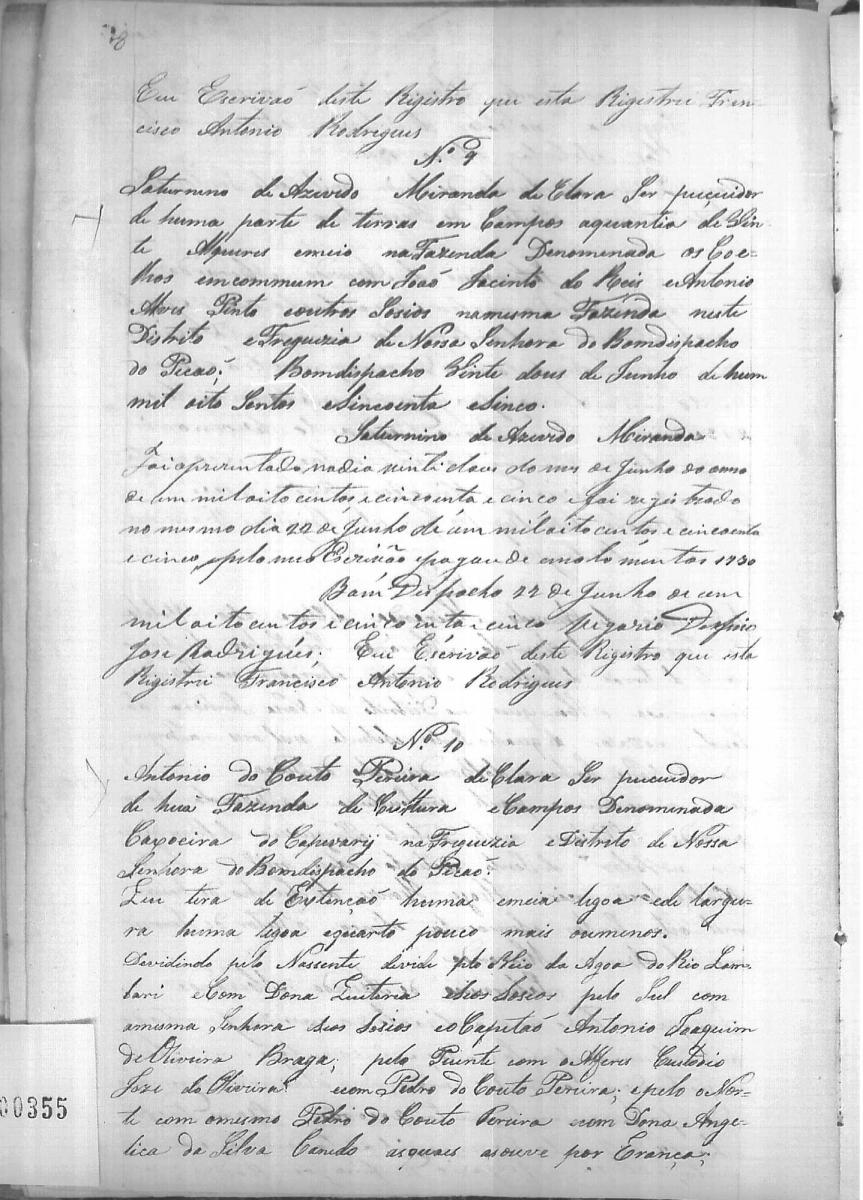 Eu Escrivaõ deste Rigistro que esta Rigistrei Fran-
cisco Antonio Rodrigues
N.º 9
Saturnino de Azevedo Miranda de Clara Ser puçuidor
de huma parte de terras em Campos aquantia de Vin-
te Alqueres emeio na Fazenda Denominada os Coe-
lhos em commum com Joaõ Jacinto do Reis e Antonio
Alves Pinto eoutros Sosios namesma Fazenda neste
Distrito e Freguezia de Nossa Senhora do Bomdispacho
do Picaõ; Bomdispacho Vinte dous de Junho de hum
mil oito Sentos eSincoenta eSinco.
Saturnino de Azevedo Miranda
Foi aprezentado nodia vinti dous do mes de Junho do anno
de um mil oito centos e cincoenta e cinco e foi registrado
no mesmo dia 22 de Junho de um mil oito centos e cincoenta
e cinco, pelo meo Escrivão epagou de emolomentos 1730
Bom Despacho 22 de Junho de um
mil oito centos e cincoenta e cinco
Jose Rodrigues; Eu Escrivaõ deste Rigistro que esta
Rigistrei Francisco Antonio Rodrigues
N.º 10
Antonio do Couto Pereira deClara Ser pucuidor
de huã Fazenda de Cultura e Campos Denominada
Caxoeira do Capivarÿ na Freguezia e Distrito de Nossa
Senhora do Bomdispacho do Picaõ.
tera de Estençaõ huma emeia legoa ede largu-
ra huma legoa equarto pouco mais oumenos.
Devidindo pelo Nassente devide plo Veio da Agoa do Rio Lam-
bari eCom Dona Quiteria eSeos Sosios pelo Sul com
amesma Senhora Seos Sosios eoCapitaõ Antonio Joaquim
deOliveira Braga; pelo Puente com oAlferes Custodio
Joze de Oliveira ecom Pedro do Couto Pereira; epelo oNor-
te com omesmo Pedro do Couto Pereira ecom Dona Ange-
lica da Silva Canedo asquaes asouve por Erança;
00355